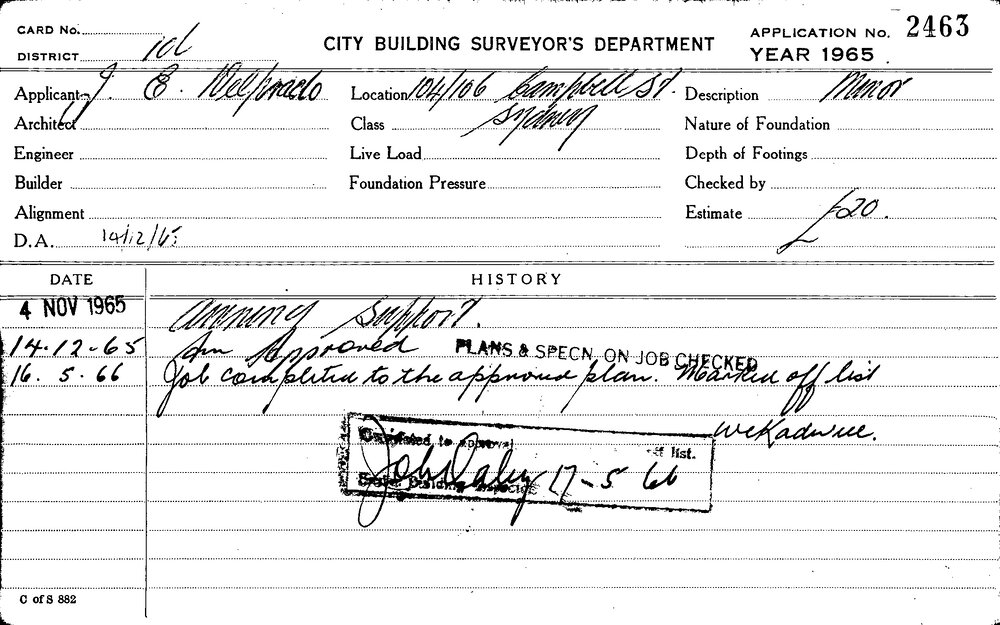 CARD No.
DISTRICT 10d
CITY BUILDING SURVEYOR'S DEPARTMENT
APPLICATION No. 2463
YEAR 1965
Applicant J. E. Delprado
Location 104/106 Campbell St.
Sydney
Description Minor
Architect
Class
Nature of Foundation
Engineer
Live Load
Depth of Footings
Builder
Foundation Pressure
Checked by
Alignment
Estimate £20.
D.A. 14/12/65
DATE
HISTORY
4 NOV 1965 Awning Support.
14-12-65 Approved PLANS & SPECN. ON JOB CHECKED
16. 5. 66 Job completed to the approved plan. Marked off list
Completed to approval off list.
John Daley 17-5 66
Building Inspector
C of S 882